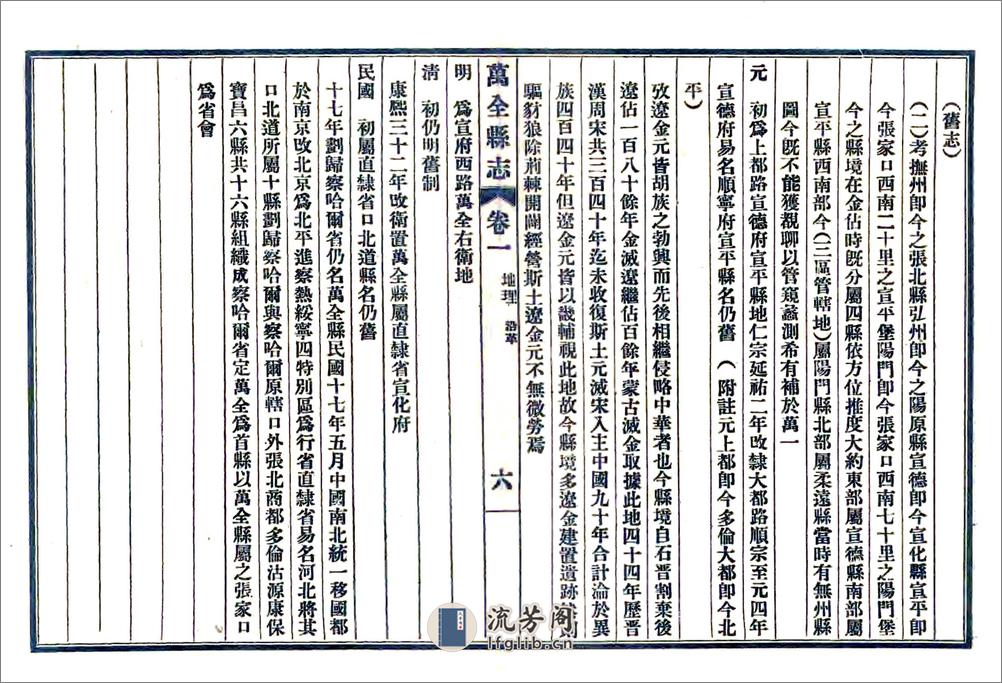 (舊志)
(二)考撫州卽今之張北縣弘州卽今之陽原縣宣德卽今宣化縣宣平卽
今張家口西南二十里之宣平堡陽門卽今張家口西南七十里之陽門堡
今之縣境在金佔時旣分屬四縣依方位推度大約東部屬宣德縣南部屬
宣平縣西南部今(二區管轄地)屬陽門縣北部屬柔遠縣當時有無州縣
圖今旣不能獲覩聊以管窺蠡測希有補於萬一
元 初爲上都路宣德府宣平縣地仁宗延祐二年改隸大都路順宗至元四年
宣德府易名順寧府宣平縣名仍舊 (附註元上都卽今多倫大都卽今北
平)
攷遼金元皆胡族之勃興而先後相繼侵略中華者也今縣境自石晋割棄後
遼佔一百八十餘年金滅遼繼佔百餘年蒙古滅金取據此地四十四年歷晋
漢周宋共三百四十年迄未收復斯土元滅宋入主中國九十年合計淪於異
族四百四十年但遼金元皆以畿輔視此地故今縣境多遼金建置遺跡
驅豺狼除荊棘開闢經營斯土遼金元不無微勞焉
萬全縣志 卷一 地理 沿革 六
明 爲宣府西路萬全右衛地
淸 初仍明舊制
康熙三十二年改衛置萬全縣屬直隸省宣化府
民國 初屬直隸省口北道縣名仍舊
十七年劃歸察哈爾省仍名萬全縣民國十七年五月中國南北統一移國都
於南京改北京爲北平進察熱綏寧四特別區爲行省直隸省易名河北將其
口北道所屬十縣劃歸察哈爾與察哈爾原轄口外張北商都多倫沽源康保
寶昌六縣共十六縣組織成察哈爾省定萬全爲首縣以萬全縣屬之張家口
爲省會
流芳阁
lfglib.cn